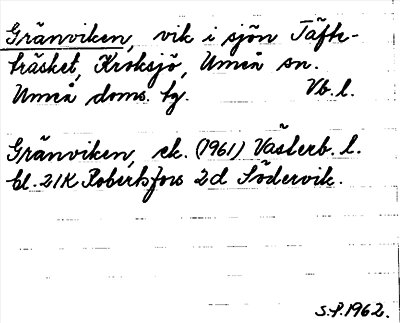 Gränviken, vik i sjön Täfte-
träsket, Kroksjö, Umeå sn.
Umeå doms. tg. Vb. l.
Gränviken, ek. (1961) Västerb. l.
bl. 21K Robertsfors 2d Södervik.
S.P. 1962.